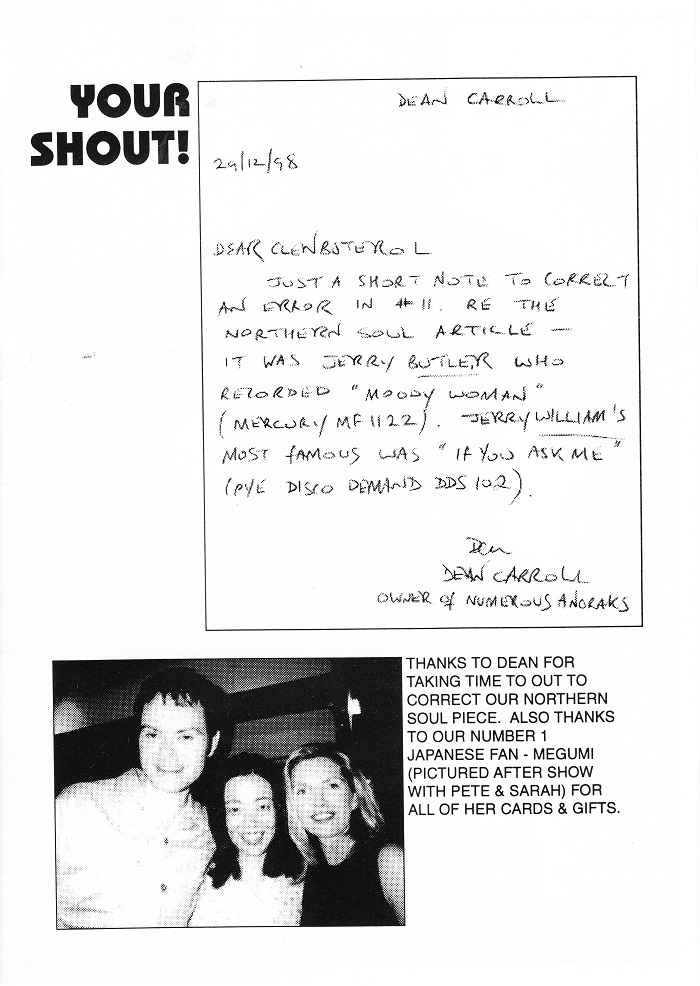 YOUR
SHOUT!
DEAN CARROLL
29/12/98
DEAR CLENBUTEROL
JUST A SHORT NOTE TO CORRECT
AN ERROR IN #11. RE THE
NORTHERN SOUL ARTICLE —
IT WAS JERRY BUTLER WHO
RECORDED "MOODY WOMAN"
(MERCURY MF 1122). JERRY WILLIAM'S
MOST FAMOUS WAS "IF YOU ASK ME"
(PYE DISCO DEMAND DDS 102).
Dean
DEAN CARROLL
OWNER OF NUMEROUS ANORAKS
THANKS TO DEAN FOR
TAKING TIME TO OUT TO
CORRECT OUR NORTHERN
SOUL PIECE. ALSO THANKS
TO OUR NUMBER 1
JAPANESE FAN - MEGUMI
(PICTURED AFTER SHOW
WITH PETE & SARAH) FOR
ALL OF HER CARDS & GIFTS.